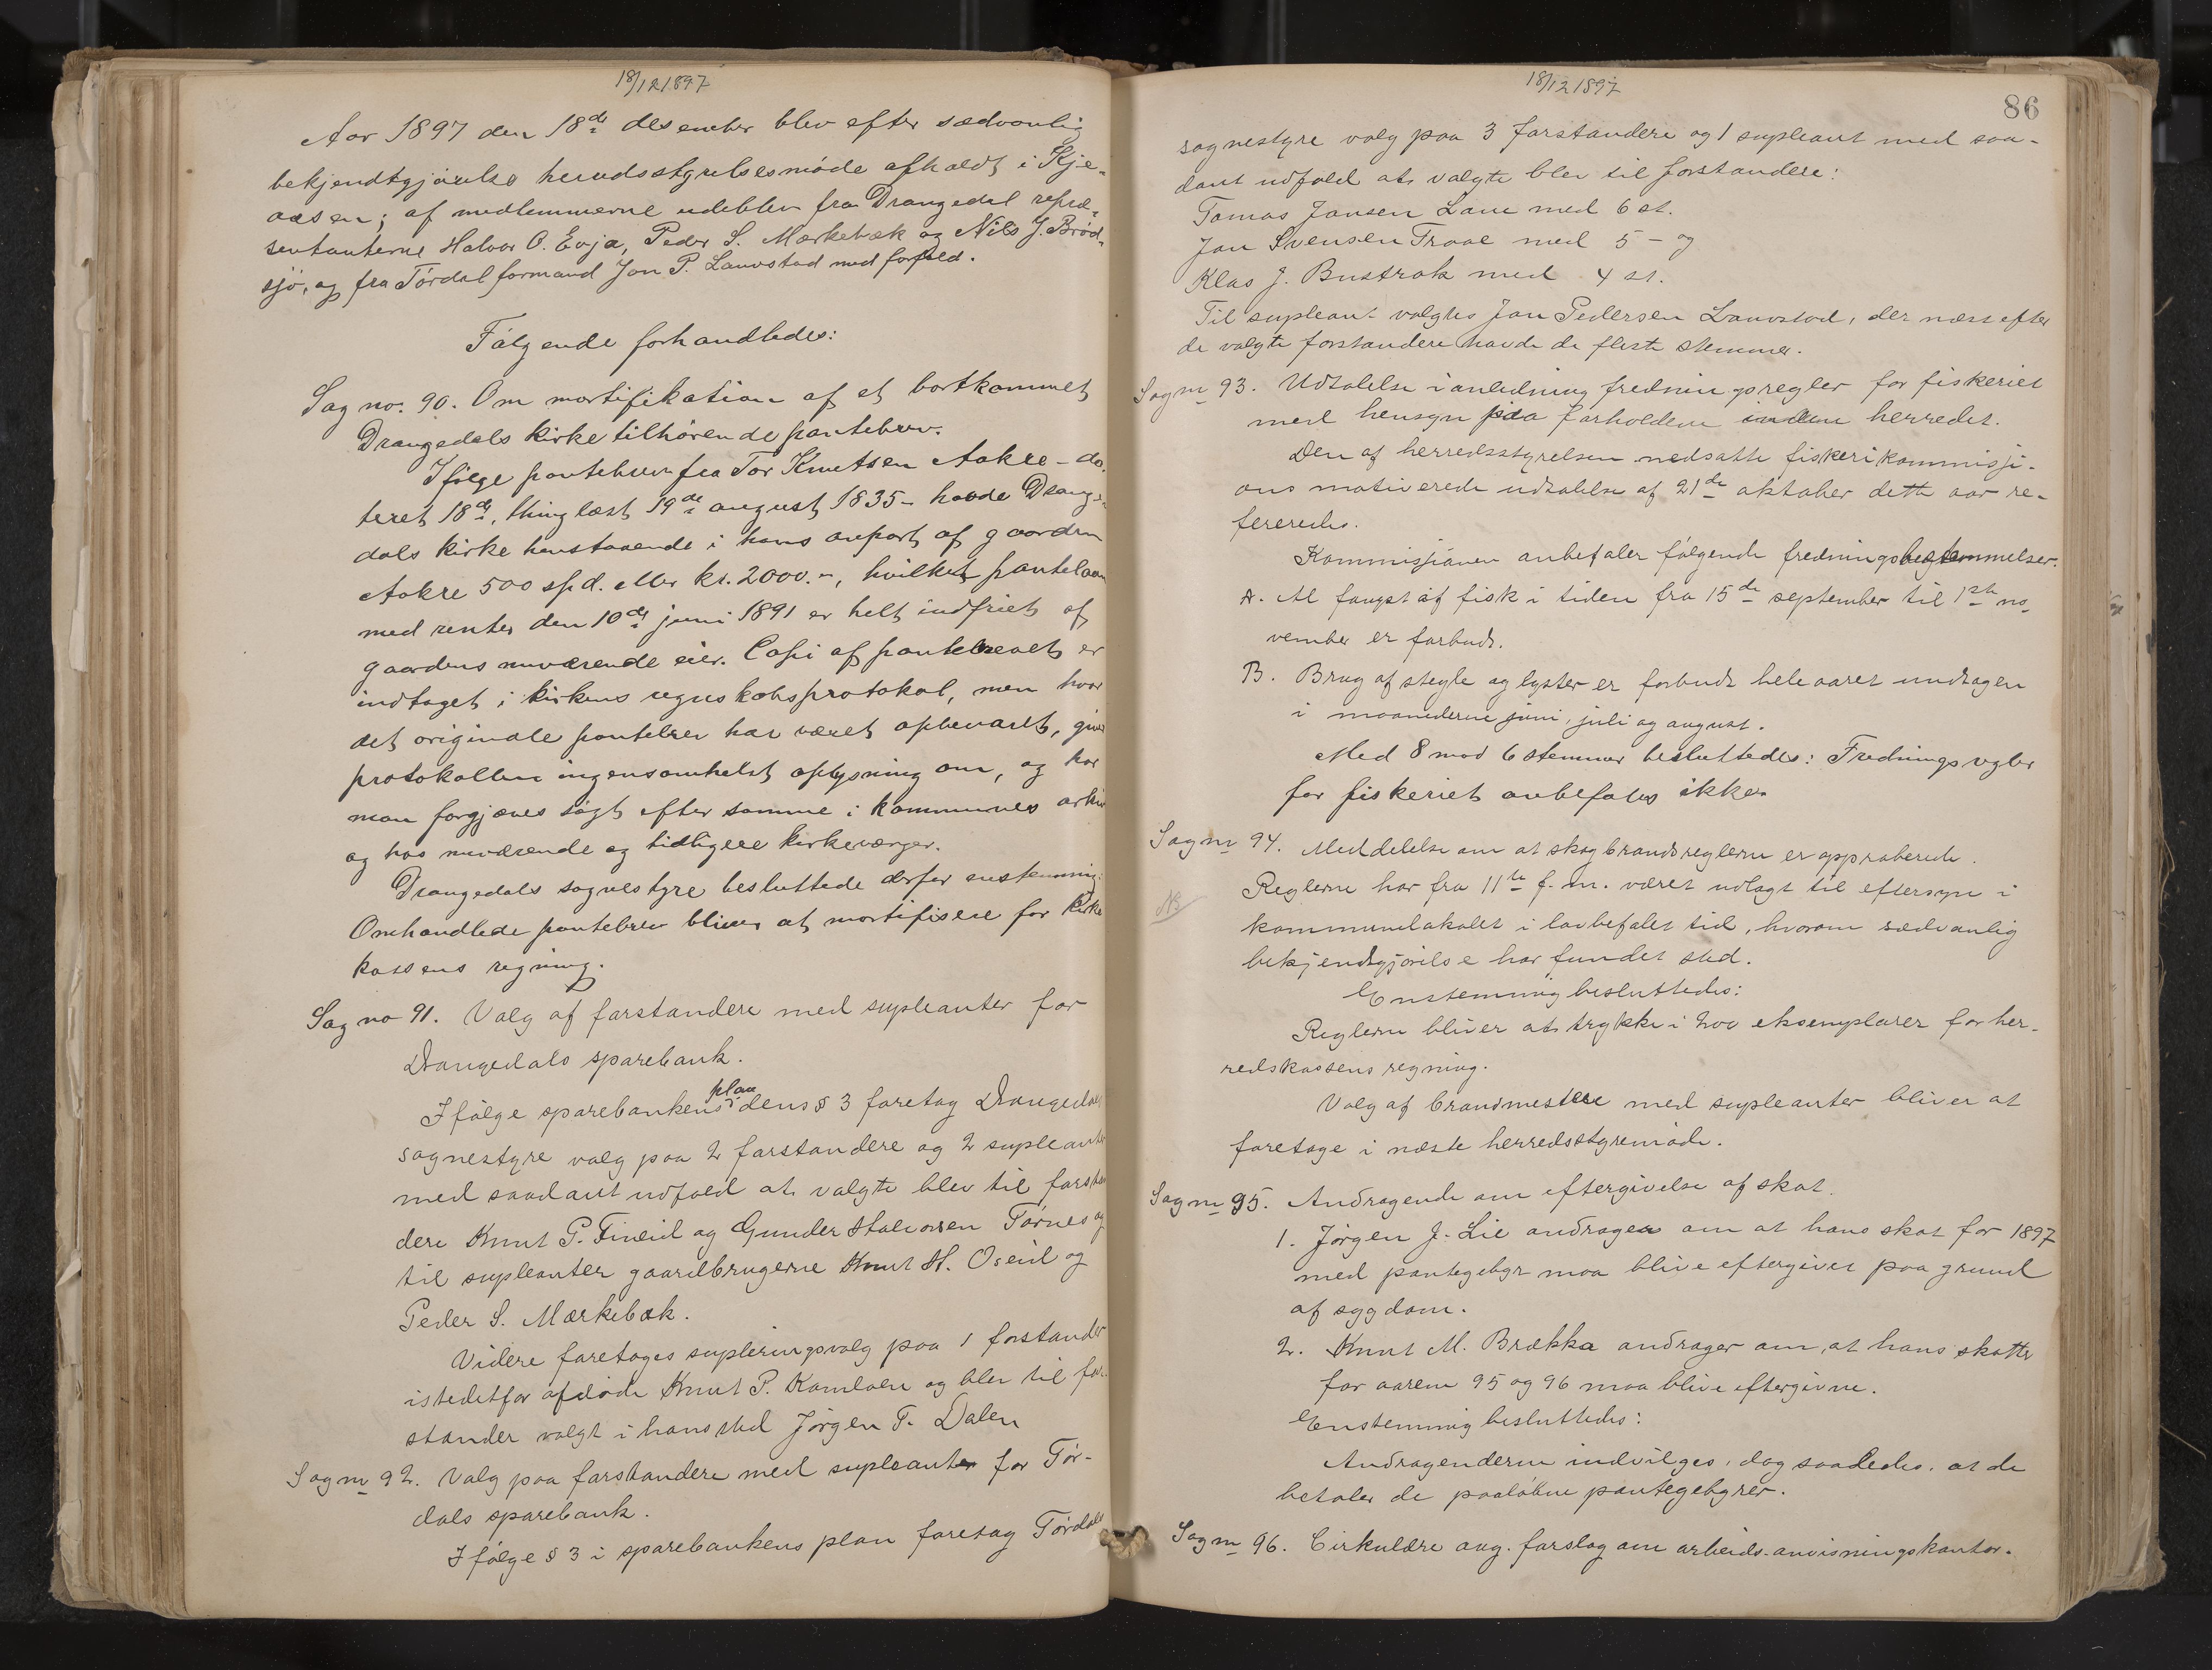 18/12 1897
Aar 1897 den 18de desember blev efter sædvanlig
bekjendtgjørelse herredsstyrelsesmøde afholdt i Kje-
aasen; af medlemmerne udeblev fra Drangedal repræ-
sentanterne Halvor O. Evja, Peder S. Mærkebæk og Nils J. Brød-
sjø, og fra Tørdal formand Jon P. Lauvstad med forfald.
Følgende forhandledes:
Sag no. 90. Om mortifikation af et bortkommet
Drangedals kirke tilhørende pantebrev.
Ifølge pantebrev fra Tor Knutsen Aakre - da-
teret 18de, thinglæst 19de august 1835 - havde Drange-
dals kirke henstaaende i hans anpart af gaarden
Aakre 500 spd. eller kr. 2000.-, hvilket pantelaan
med renter den 10de juni 1891 er helt indfriet af
gaardens nuværende eier. Copi af pantebrevet er
indtaget i kirkens regnskabsprotokol, men hvor
det originale pantebrev har været opbevaret, giver
protokollen ingensomhelst oplysning om, og har
man forgjæves søgt efter samme i kommunes arkiv
og hos nuværende og tidligere kirkeværger.
Drangedals sognestyre besluttede derfor enstemmig:
Omhandlede pantebrev bliver at mortifisere for kirke
kassens regning.
Sag no 91. Valg af forstandere med supleanter for
Drangedals sparebank.
plan
Ifølge sparebankens dens § 3 foretog Drangedals
sognestyre valg paa 2 forstandere og 2 supleanter
med saadant udfald at valgte blev til forstan
dere Knut P. Fineid og Gunder Halvorsen Tørnes og
til supleanter gaardbrugerne Knut H. Oseid og
Peder S. Mærkebæk.
Videre foretoges supleringsvalg paa 1 forstander
istedetfor afdøde Knut P. Kamlaen og blev til for-
stander valgt i hans sted Jørgen T. Dalen
Sag no 92. Valg paa forstandere med supleanter for Tør-
dals sparebank.
Ifølge § 3 i sparebankens plan foretog Tørdals
18/12 1897
86
sognestyre valg paa 3 forstandere og 1 supleant med saa-
dant udfald at valgte blev til forstandere:
Tomas Jansen Lane med 6 st.
Jon Svensen Traae med 5 - og
Klas J. Bustrak med 4 st.
Til supleant valgtes Jon Pedersen Lauvstad, der næst efter
de valgte forstandere havde de fleste stemmer.
Sag no 93. Udtalelse i anledning fredningsregler for fiskeriet
med hensyn paa forholdene inden herredet.
Den af herredsstyrelsen nedsatte fiskerikommisji-
ons motiverede udtalelse af 21de oktober dette aar re-
fereredes.
Kommissjonen anbefaler følgende fredningsbestemmelser.
A. Al fangst af fisk i tiden fra 15de september til 1ste no-
vember er forbudt.
B. Brug af stegle og lyster er forbudt hele aaret undtagen
i maanederne juni, juli og august.
Med 8 mod 6 stemmer besluttedes: Fredningsregler
for fiskeriet anbefales ikke.
Sag no 94. Meddelelse om at skogbrandsreglerne er approberede.
NB
Reglerne har fra 11te f. m. været udlagt til eftersyn i
kommunelokalet i lovbefalet tid, hvorom sædvanlig
bekjendtgjørelse har fundet sted.
Enstemmig besluttedes:
Reglerne bliver at trykke i 200 eksemplarer for her-
redskassens regning.
Valg af brandmestere med supleanter bliver at
foretage i næste herredsstyremøde.
Sag no 95. Andragende om eftergivelse af skat.
1. Jørgen J. Lie andrager om at hans skat for 1897
med pantegebyr maa blive eftergivet paa grund
af sygdom.
2. Knut M. Brækka andrager om, at hans skatter
for aarene 95 og 96 maa blive eftergivne.
Enstemmig besluttedes:
Andragenderne indvilges, dog saaledes, at de
betaler de paaløbne pantegebyrer.
Sag no 96. Cirkulære ang. forslag om arbeids-anvisningskontor.